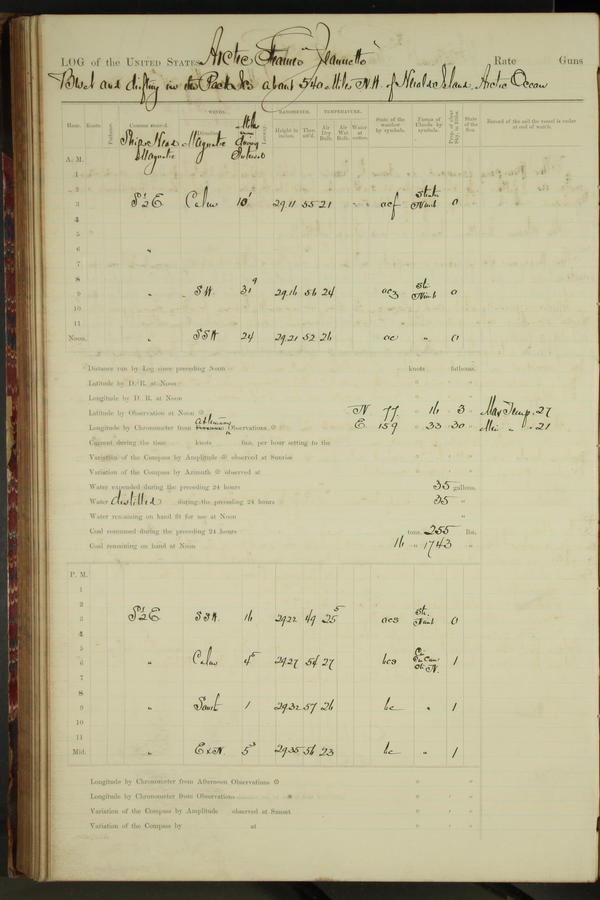 LOG of the UNITED STATES Arctic Steamer "Jeannette" Rate Guns
Beset and drifting in the Pack Ice about 540 Miles N.W. of Herald Island, Arctic Ocean
Hour. Knots. Courses steered. WINDS. BAROMETER. TEMPERATURE. State of the weather by symbols. Forms of Clouds by symbols. Prop. of clear Sky, in 10ths State of the Sea Record of the sail the vessel is under at end of watch.
Height in inches. Ther. att'd. Air Dry Bulb. Air Wet Bulb. Water at surface.
Ship's Head Magnetic Magnetic Miles during Interval
A. M.
1
2
3 S½E Calm 10¹ 29.11 55 21 " ocf 0
4
5
6 "
7
8
9 " S.W. 31⁹ 29.16 56 24 0
10
11
Noon. " SSW 24 29.21 52 26 oc " 0
Distance run by Log since preceding Noon knots fathoms.
Latitude by D. R. at Noon
Longitude by D. R. at Noon
Latitude by Observation at Noon N 77 16 3 Max Temp. 27
Longitude by Chronometer from Observations E 159 33 30 Min " 21
Current during the time knots fms. per hour setting to the
Variation of the Compass by Amplitude observed at Sunrise
Variation of the Compass by Azimuth observed at
Water expended during the preceding 24 hours 35 gallons.
Water distilled during the preceding 24 hours 35 "
Water remaining on hand fit for use at Noon "
Coal consumed during the preceding 24 hours tons. 255 lbs.
Coal remaining on hand at Noon 16 " 1743 "
P. M.
1
2
3 S½E SSW. 16 29.22 49 25⁵ ocs 0
4
5
6 " Calm 4⁵ 29.27 54 27 bcs 1
7
8
9 " 1 29.32 57 26 bc " 1
10
11
Mid. " ExN. 5³ 29.35 56 23 bc " 1
Longitude by Chronometer from Afternoon Observations
Longitude by Chronometer from Observations
Variation of the Compass by Amplitude observed at Sunset
Variation of the Compass by at